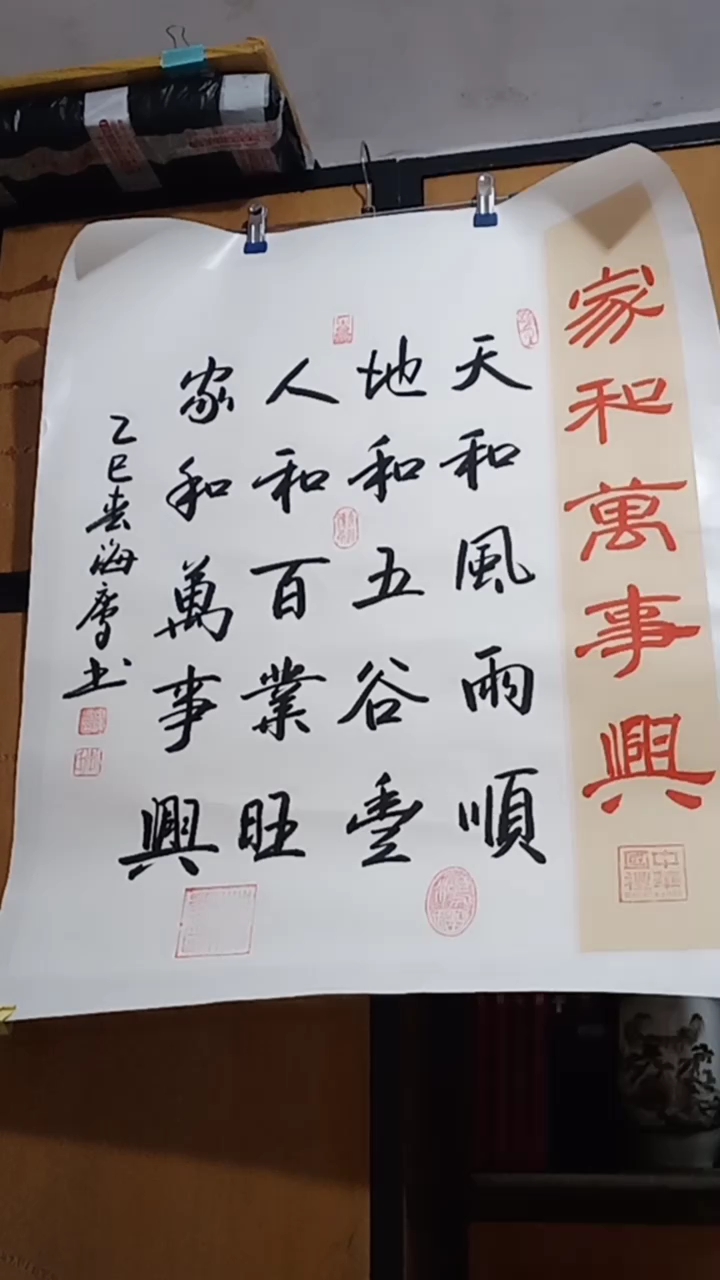 家和萬事興
天和風雨順
地和五谷豐
人和百業旺
家和萬事興
乙巳春海鷹书